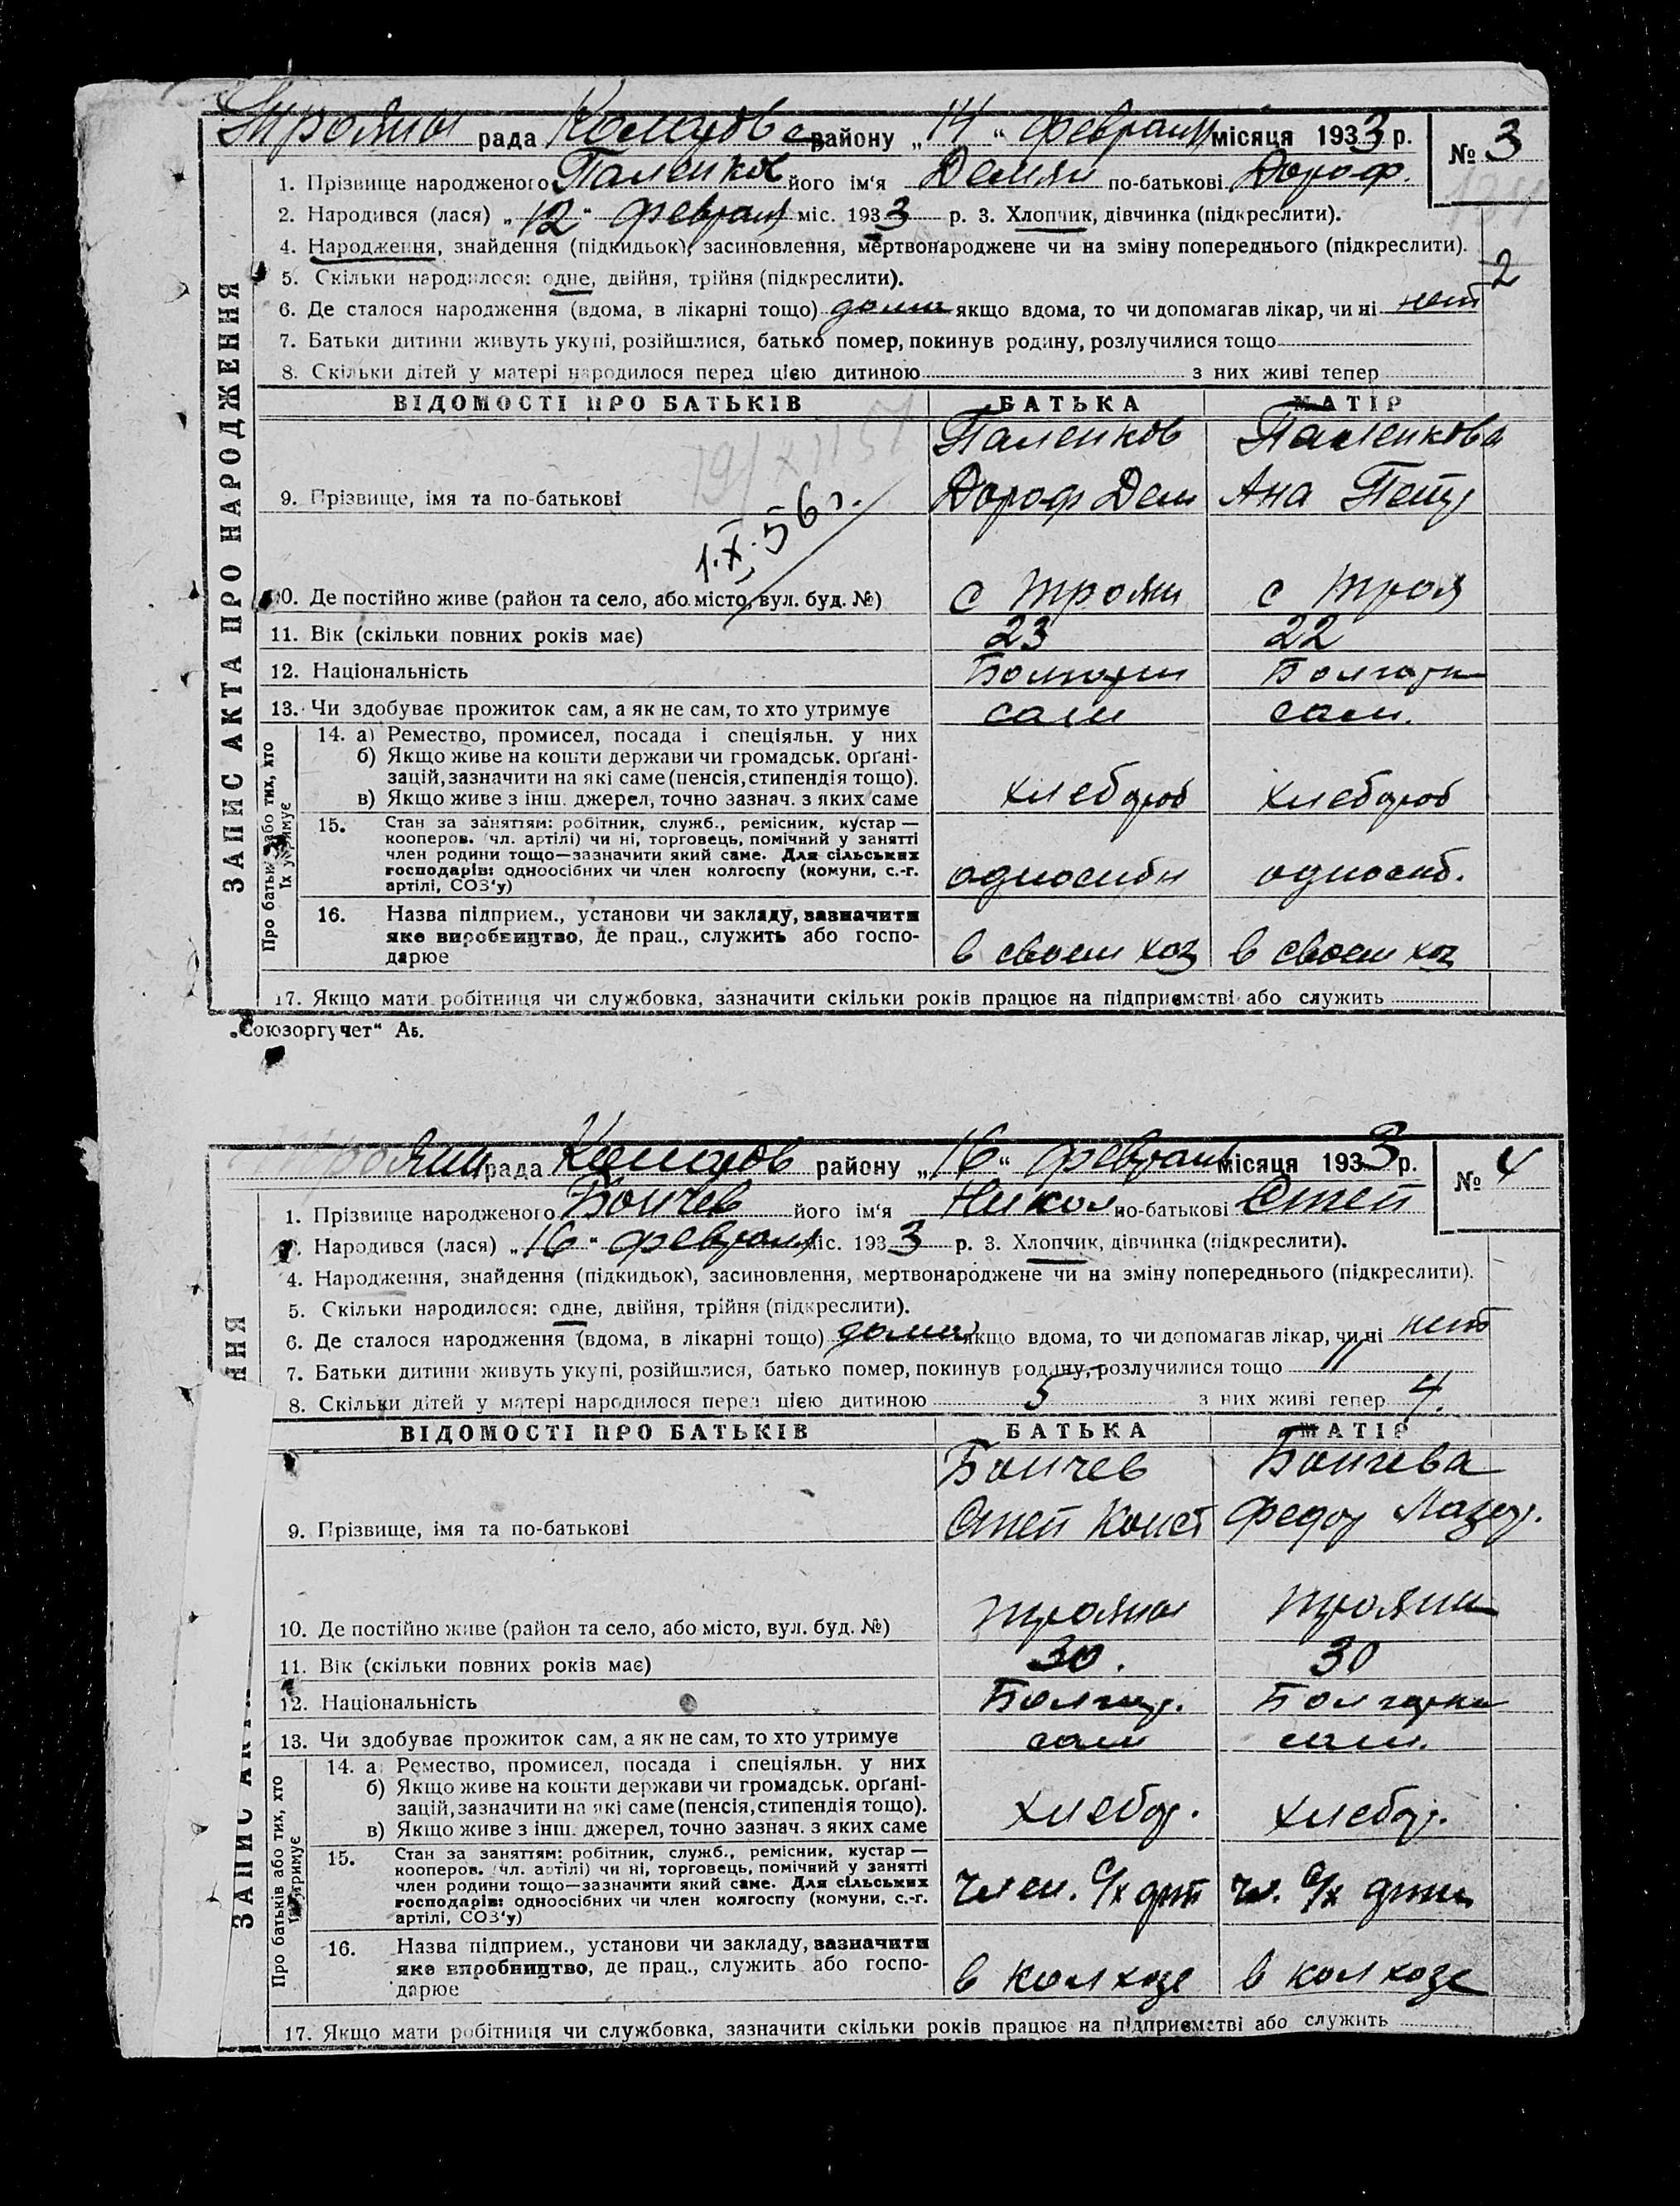 Трояны рада Коларов району „14“ февраля місяця 1933 р. № 3
1. Прізвище народженого Паленков його ім'я Демян по-батькові Дороф.
2. Народився (лася) „12“ февраля міс. 1933 р. 3. Хлопчик, дівчинка (підкреслити).
4. Народження, знайдення (підкидьок), засиновлення, мертвонароджене чи на зміну попереднього (підкреслити).
2
5. Скільки народилося: одне, двійня, трійня (підкреслити).
6. Де сталося народження (вдома, в лікарні тощо) дома якщо вдома, то чи допомагав лікар, чи ні нет
7. Батьки дитини живуть укупі, розійшлися, батько помер, покинув родину, розлучилися тощо
8. Скільки дітей у матері народилося перед цією дитиною з них живі тепер
ЗАПИС АКТА ПРО НАРОДЖЕННЯ
ВІДОМОСТІ ПРО БАТЬКІВ БАТЬКА МАТІР
Паленков Паленкова
9. Прізвище, імя та по-батькові Дороф Дем Ана Петр
1.X.56 г.
10. Де постійно живе (район та село, або місто, вул. буд. №) с Трояни с Троя
11. Вік (скільки повних років має) 23 22
12. Національність Болгарин Болгарк
13. Чи здобуває прожиток сам, а як не сам, то хто утримує сам сам.
Про батьків або тих, хто їх утримує
14. а) Ремество, промисел, посада і спеціяльн. у них
б) Якщо живе на кошти держави чи громадськ. орґані-
зацій, зазначити на які саме (пенсія, стипендія тощо).
в) Якщо живе з інш. джерел, точно зазнач. з яких саме хлебороб хлебороб
15. Стан за заняттям: робітник, служб., ремісник, кустар —
кооперов. (чл. артілі) чи ні, торговець, помічний у занятті
член родини тощо—зазначити який саме. Для сільських
господарів: одноосібних чи член колгоспу (комуни, с.-г.
артілі, СОЗ'у) односибн односиб.
16. Назва підприєм., установи чи закладу, зазначити
яке виробництво, де прац., служить або госпо-
дарює в своем хоз в своем хоз
17. Якщо мати робітниця чи службовка, зазначити скільки років працює на підприємстві або служить
„Союзоргучет“ Аб.
Трояны рада Коларов району „16“ февраля місяця 1933 р. № 4
1. Прізвище народженого Бончев його ім'я Никол по-батькові Степ
2. Народився (лася) „16“ февраля міс. 1933 р. 3. Хлопчик, дівчинка (підкреслити).
4. Народження, знайдення (підкидьок), засиновлення, мертвонароджене чи на зміну попереднього (підкреслити).
5. Скільки народилося: одне, двійня, трійня (підкреслити).
6. Де сталося народження (вдома, в лікарні тощо) дома якщо вдома, то чи допомагав лікар, чи ні нет
7. Батьки дитини живуть укупі, розійшлися, батько помер, покинув родину, розлучилися тощо //
8. Скільки дітей у матері народилося перед цією дитиною 5 з них живі тепер 4.
ВІДОМОСТІ ПРО БАТЬКІВ БАТЬКА МАТІР
Бончев Бончева
9. Прізвище, імя та по-батькові Степ Конст Федор Лазар.
10. Де постійно живе (район та село, або місто, вул. буд. №) Трояны Трояни
11. Вік (скільки повних років має) 30. 30
12. Національність Болгар. Болгарка
13. Чи здобуває прожиток сам, а як не сам, то хто утримує сам сам.
Про батьків або тих, хто їх утримує
14. а) Ремество, промисел, посада і спеціяльн. у них
б) Якщо живе на кошти держави чи громадськ. орґані-
зацій, зазначити на які саме (пенсія, стипендія тощо).
в) Якщо живе з інш. джерел, точно зазнач. з яких саме хлебор. хлебор.
15. Стан за заняттям: робітник, служб., ремісник, кустар —
кооперов. (чл. артілі) чи ні, торговець, помічний у занятті
член родини тощо—зазначити який саме. Для сільських
господарів: одноосібних чи член колгоспу (комуни, с.-г.
артілі, СОЗ'у) член. с/х арт чл. с/х арти
16. Назва підприєм., установи чи закладу, зазначити
яке виробництво, де прац., служить або госпо-
дарює в колхозе в колхозе
17. Якщо мати робітниця чи службовка, зазначити скільки років працює на підприємстві або служить